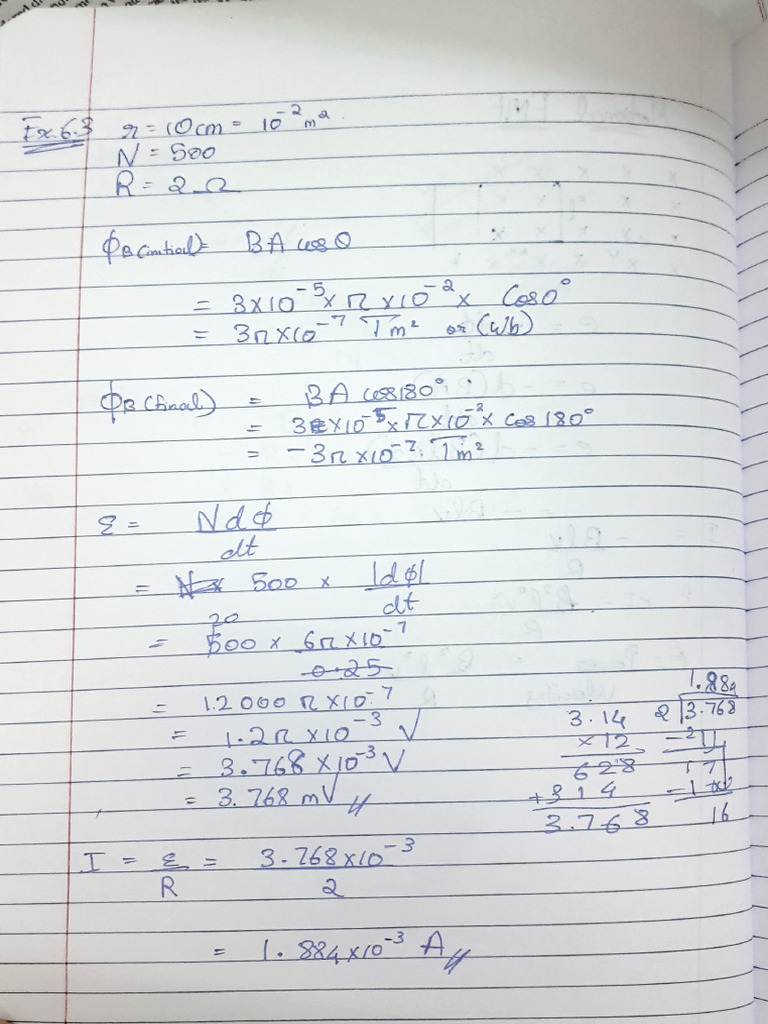 Ex.6.3 r = 10cm = 10⁻² m²
N = 500
R = 2 Ω
ϕB(initial) = BA cos θ
= 3×10⁻⁵ × π × 10⁻² × Cos 0°
= 3π×10⁻⁷ Tm² or (Wb)
ϕB(final) = BA cos180°
= 3×10⁻⁵ × π × 10⁻² × cos 180°
= −3π × 10⁻⁷ Tm²
ε = Ndϕ
dt
= 500 × |dϕ|
dt
20
= 500 × 6π×10⁻⁷
0.25
= 12000 π×10⁻⁷
= 1.2π ×10⁻³ V
= 3.768 ×10⁻³ V
= 3.768 mV
3.14
×12
628
+314
3.768
1.884
2 3.768
-2
17
16
I = ε = 3.768×10⁻³
R 2
= 1.884×10⁻³ A